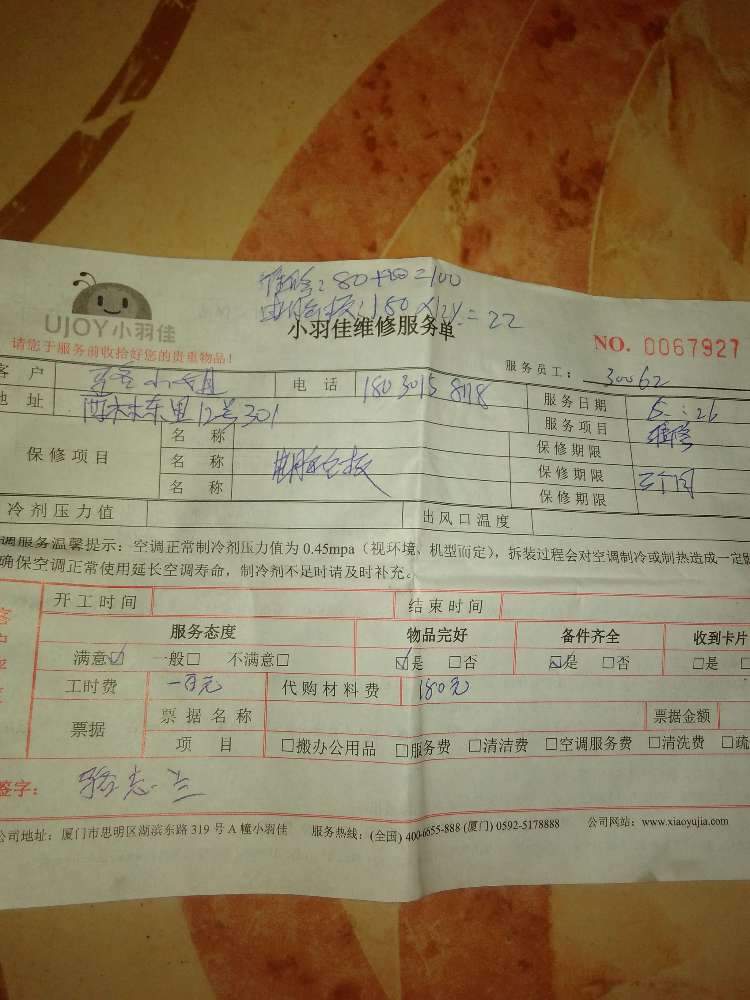 维修：80+20=100
电脑板：180×12%=22
UJOY小羽佳
小羽佳维修服务单
请您于服务前收拾好您的贵重物品！
NO. 0067927
服务员工： 30062
客 户 小姐 电 话 180 3015 8118 服务日期 5 : 26
地 址 东里12号301 服务项目 维修
保修项目 名 称 保修期限
名 称 电脑板 保修期限 三个月
名 称 保修期限
冷剂压力值 出风口温度
调服务温馨提示：空调正常制冷剂压力值为 0.45mpa（视环境、机型而定），拆装过程会对空调制冷或制热造成一定
确保空调正常使用延长空调寿命，制冷剂不足时请及时补充。
开工时间 结束时间
服务态度 物品完好 备件齐全 收到卡片
满意☑ 一般□ 不满意□ ☑是 □否 ☑是 □否 □是 □
工时费 一百元 代购材料费 180元
票据 票据名称 票据金额
项 目 □搬办公用品 □服务费 □清洁费 □空调服务费 □清洗费 □疏
签字：
公司地址：厦门市思明区湖滨东路 319 号 A 幢小羽佳 服务热线：(全国) 400-6655-888 (厦门) 0592-5178888 公司网站：www.xiaoyujia.com